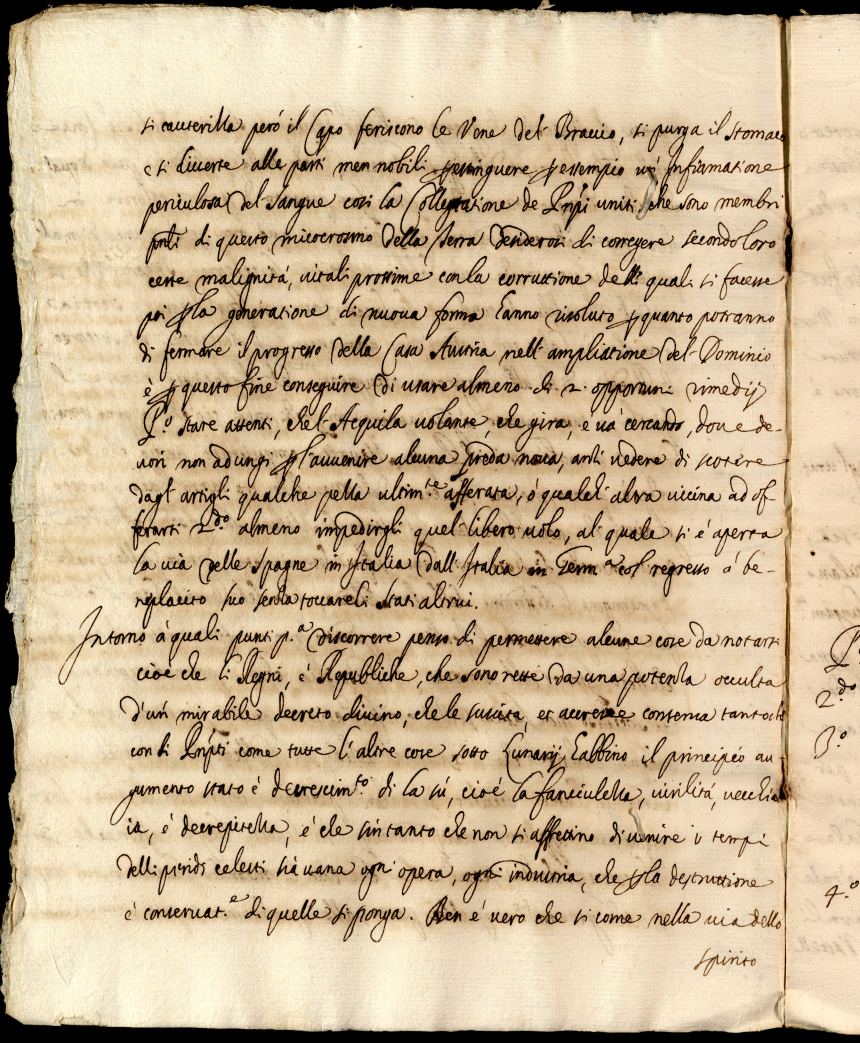 si cauterizza però il Capo feriscono le Vene del Braccio, si purga il stomaco
e si diverte alle parti men nobili estinguere essempio un'Infiamatione
periculosa del sangue così la Collegatione de Prñpi uniti, che sono membri
pñli di questo microcosmo della Terra desiderosi di corregere secondo loro
certe malignità, vitali prossime con la corruttione delli quali si facesse
poi p la generatione di nuova forma hanno risoluto p quanto potranno
di fermare il progresso della Casa Austria nell'ampliatione del Dominio
è p questo fine conseguire di usare almeno di 2 opportuni rimedij
P.º stare attenti, che l'Acquila volante, che gira, e và cercando, dove de-
vori non adungi p l'avvenire alcuna preda nova, anzi vedere di
dagl'artigli qualche pezza ultim.te afferata, ò qualch'altra vicina ad af-
ferarsi 2.do almeno impedirgli quel libero volo, al quale si è aperta
la via delle Spagne in Italia dall'Italia in Germ.a col regresso à be-
neplacito suo senza toccare li stati altrui.
Intorno à quali punti p.a discorrere penso di permettere alcune cose da notarsi
cioè che li Regni, è Republiche, che sono rette da una potenza occulta
d'un mirabile decreto divino, che le suscita, et accresce conserva
con li Prñpti come tutte l'altre cose sotto Lunarij habbino il principio au-
gumento stato è decrescim.to di la sù, cioè la fanciulezza, virilità, vecchia
ia, è decrepitezza, è che sin tanto che non si affettino di venire i tempi
delli periodi celesti sia vana ogni opera, ogni industria, che p la destruttione
è conservat.e di quelle si ponga. Ben è vero che si come nella via dello
spirito
P.º
2.do
3.º
4.º